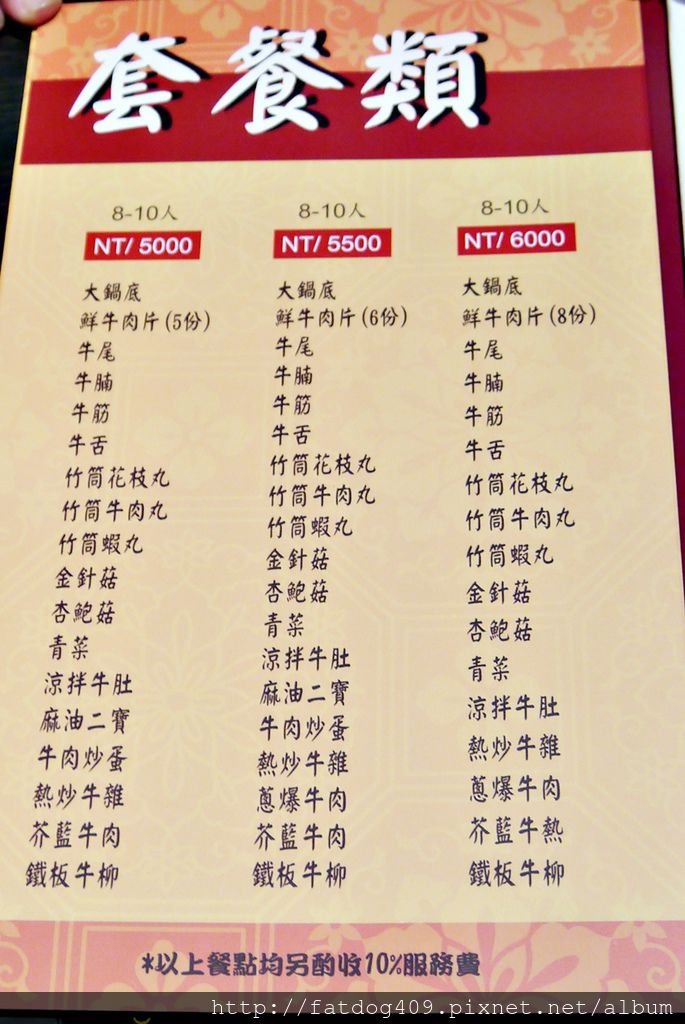 套餐類
8-10人
NT/ 5000
大鍋底
鮮牛肉片(5份)
牛尾
牛腩
牛筋
牛舌
竹筒花枝丸
竹筒牛肉丸
竹筒蝦丸
金針菇
杏鮑菇
青菜
涼拌牛肚
麻油二寶
牛肉炒蛋
熱炒牛雜
芥藍牛肉
鐵板牛柳
8-10人
NT/ 5500
大鍋底
鮮牛肉片(6份)
牛尾
牛腩
牛筋
牛舌
竹筒花枝丸
竹筒牛肉丸
竹筒蝦丸
金針菇
杏鮑菇
青菜
涼拌牛肚
麻油二寶
牛肉炒蛋
熱炒牛雜
蔥爆牛肉
芥藍牛肉
鐵板牛柳
8-10人
NT/ 6000
大鍋底
鮮牛肉片(8份)
牛尾
牛腩
牛筋
牛舌
竹筒花枝丸
竹筒牛肉丸
竹筒蝦丸
金針菇
杏鮑菇
青菜
涼拌牛肚
熱炒牛雜
蔥爆牛肉
芥藍牛熱
鐵板牛柳
*以上餐點均另酌收10%服務費
http://fatdog409.pixnet.net/album